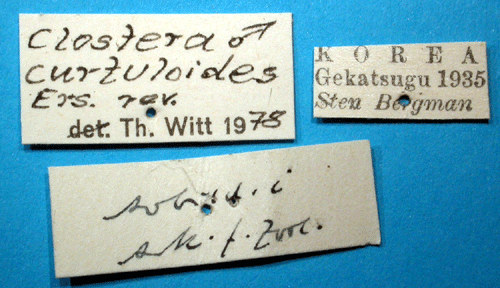 Clostera ♂
curtuloides
Ers. rev.
det. Th. Witt 1978
KOREA
Gekatsugu 1935
Sten Bergman
i
f. Zool.